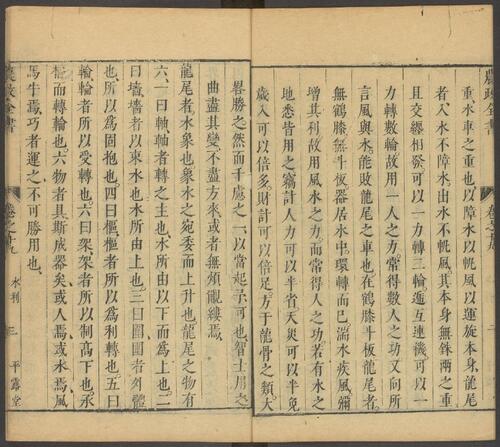 農政全書
卷之十九
重水車之重也以障水以帆風以運旋本身龍尾
者入水不障水出水不帆風其本身無銖兩之重
且交纏相發可以一力轉二輪遞互連機可以一
力轉數輪故用一人之力常得數人之功又向所
言風與水能敗龍尾之車也在鶴膝斗板龍尾者
無鶴膝無斗板器居水中環轉而已湍水疾風彌
增其利故用風水之力而常得人之功若有水之
地悉皆用之竊計人力可以半省天災可以半免
歲入可以倍多財計可以倍足方于龍骨之類大
畧勝之然而千慮之一以當起予可也智士用之
曲盡其變不盡方來或者無煩覶縷焉
龍尾者水象也象水之宛委而上升也龍尾之物有
六一曰軸軸者轉之主也水所由以下而爲上也二
曰墻墻者以束水也水所由上也三曰圍圍者外體
也所以爲固抱也四曰樞樞者所以爲利轉也五曰
輪輪者所以受轉也六曰架架者所以制高下也承
樞而轉輪也六物者具斯成器矣或人焉或水焉風
馬牛焉巧者運之不可勝用也
農政全書
卷之十九
水利
三
平露堂